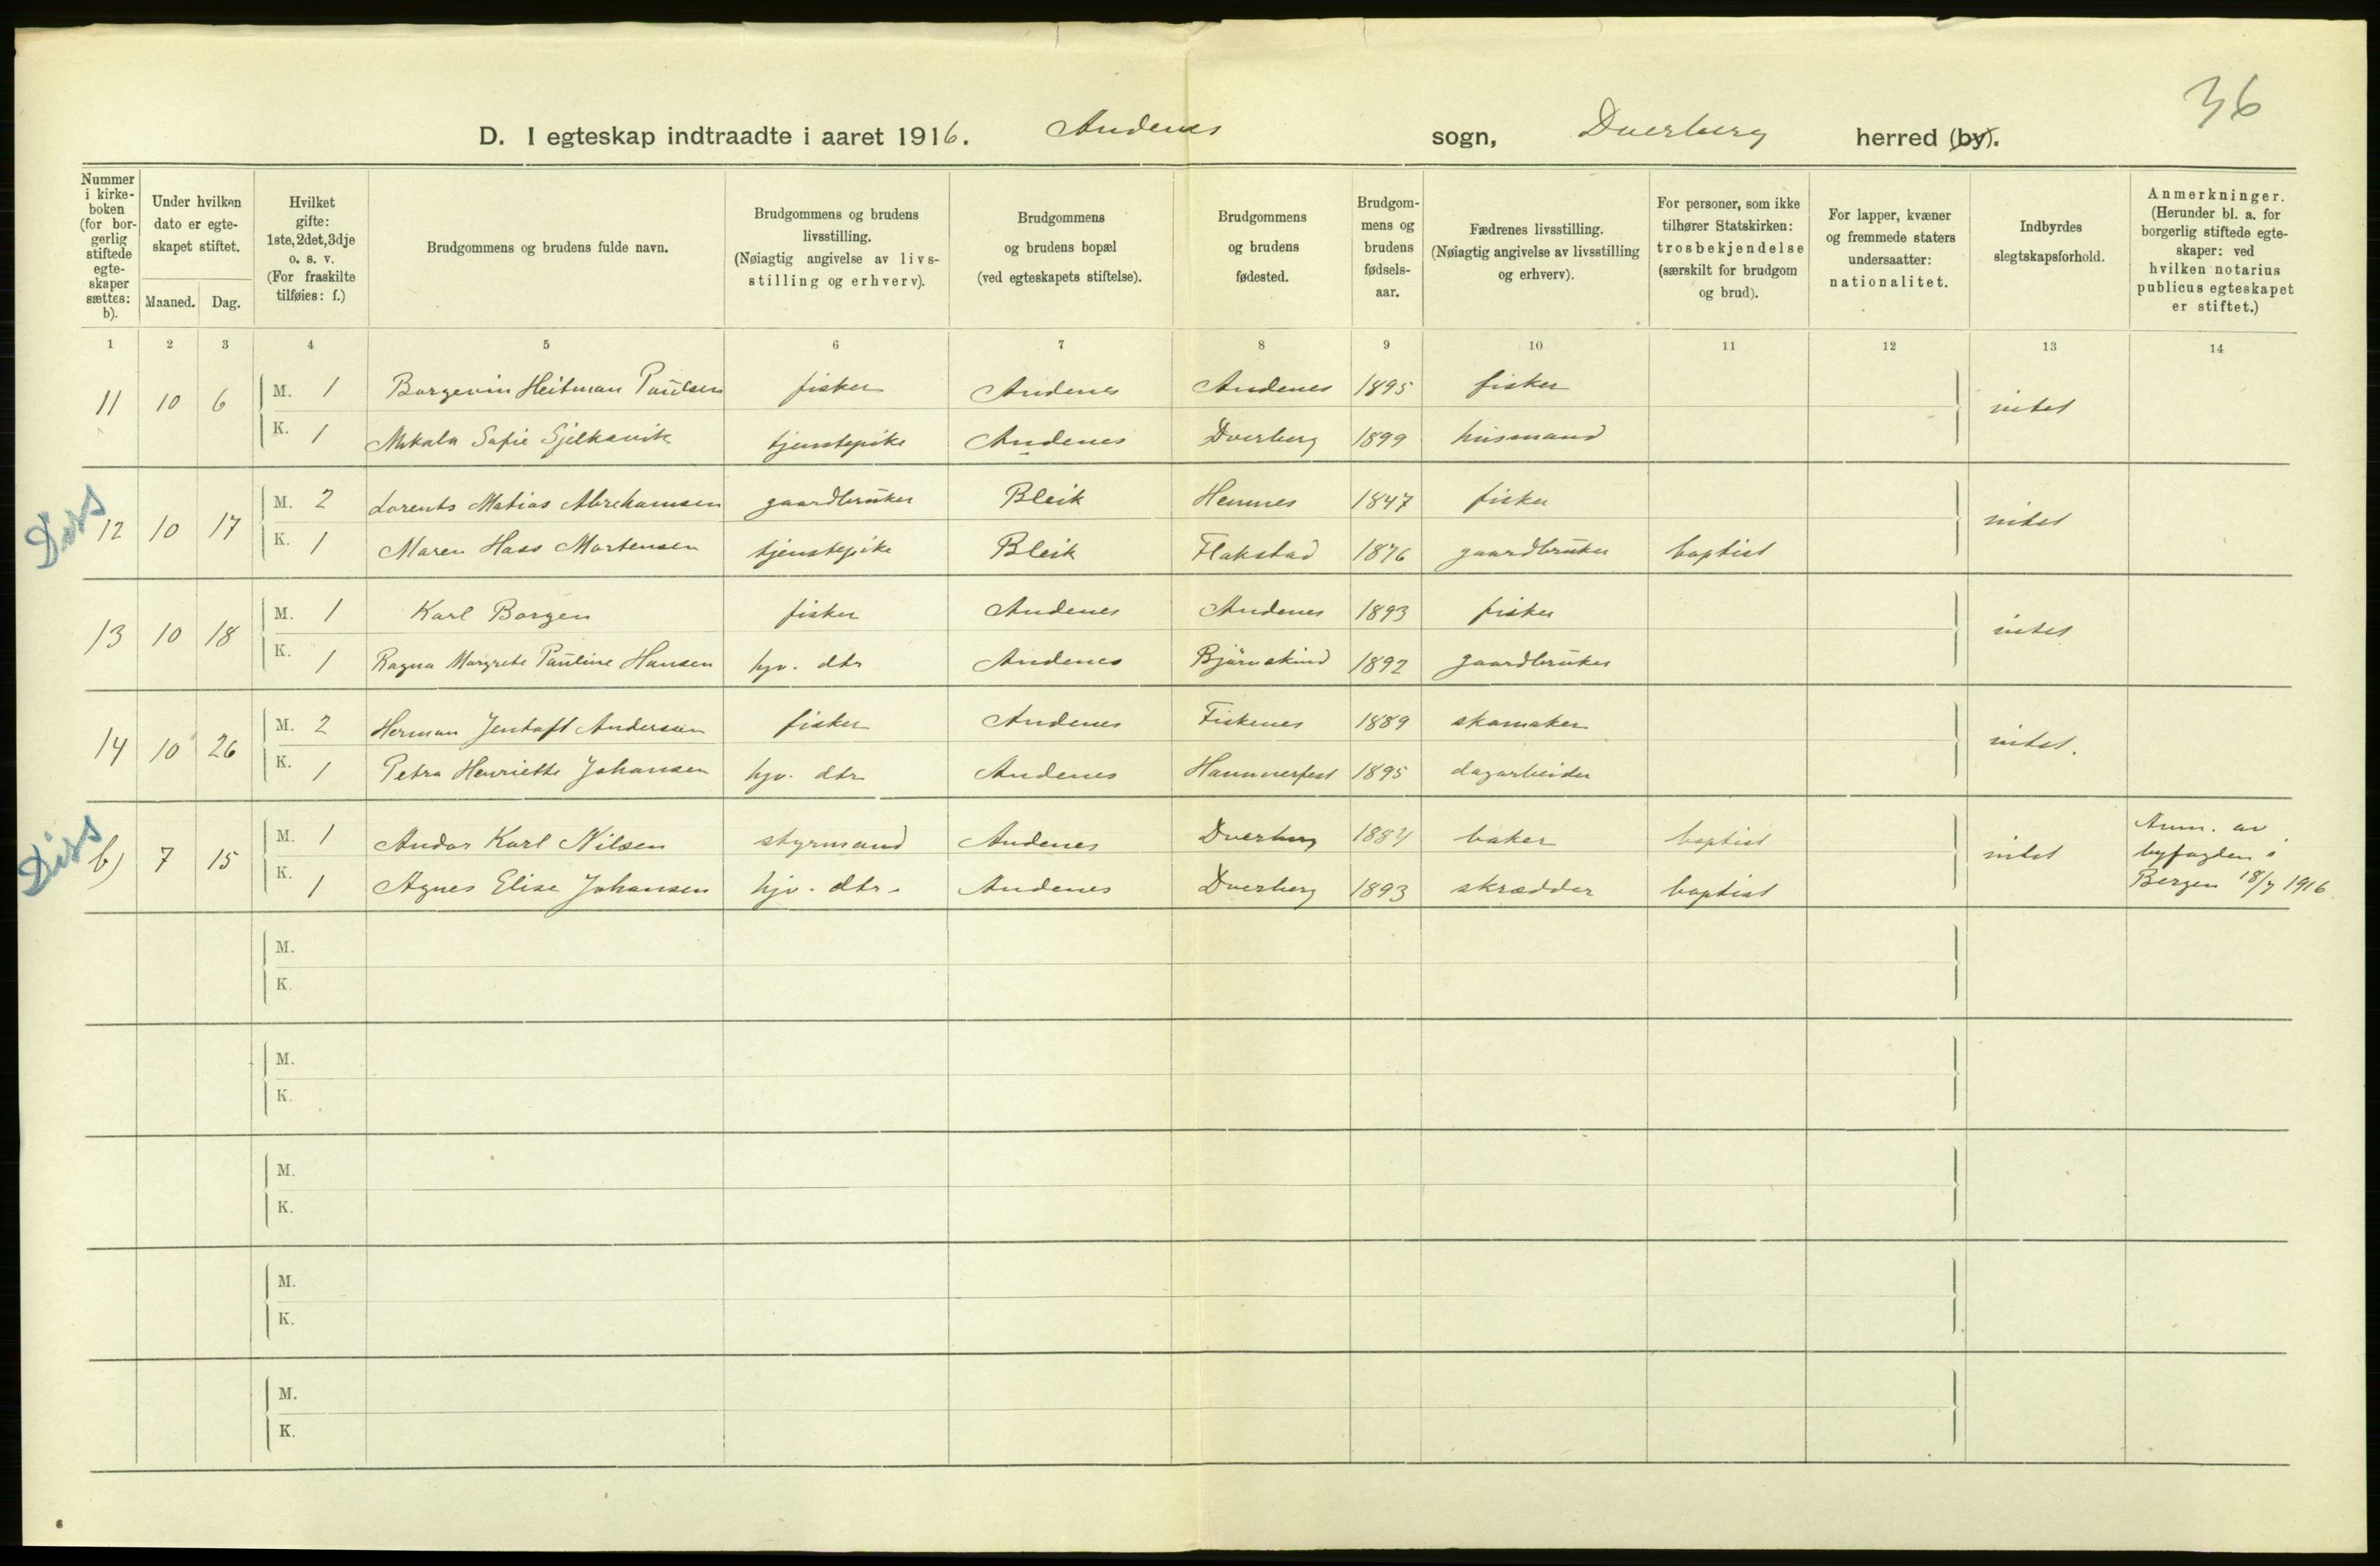 36
D. I egteskap indtraadte i aaret 1916. Andenes sogn, Dverberg herred (by).
Nummer i kirke-boken (for bor-gerlig stiftede egte-skaper sættes: b).
Under hvilken dato er egte-skapet stiftet.
Maaned. Dag.
Hvilket gifte: 1ste, 2det, 3dje o. s. v. (For fraskilte tilføies: f.)
Brudgommens og brudens fulde navn.
Brudgommens og brudens livsstilling. (Nøiagtig angivelse av livs-stilling og erhverv).
Brudgommens og brudens bopæl (ved egteskapets stiftelse).
Brudgommens og brudens fødested.
Brudgom-mens og brudens fødsels-aar.
Fædrenes livsstilling. (Nøiagtig angivelse av livsstilling og erhverv).
For personer, som ikke tilhører Statskirken: trosbekjendelse (særskilt for brudgom og brud).
For lapper, kvæner og fremmede staters undersaatter: nationalitet.
Indbyrdes slegtskapsforhold.
Anmerkninger. (Herunder bl. a. for borgerlig stiftede egte-skaper: ved hvilken notarius publicus egteskapet er stiftet.)
1 2 3 4 5 6 7 8 9 10 11 12 13 14
11 10 6 M. 1 Borgevin Heitman Paulsen fisker Andenes Andenes 1895 fisker intet
K. 1 Sofie tjenstepike Andenes Dverberg 1899 husmand
Diss
12 10 17 M. 2 Lorents Matias Abrehamsen gaardbruker Bleik Hemnes 1847 fisker intet
K. 1 Maren Hass Mortensen tjenstepike Bleik Flakstad 1876 gaardbruker baptist
13 10 18 M. 1 Karl Borgen fisker Andenes Andenes 1893 fisker intet
K. 1 Ragna Margrete Pauline Hansen hjv. dtr Andenes Bjørnskind 1892 gaardbruker
14 10 26 M. 2 Herman Jentoft Anderssen fisker Andenes Fiskenes 1889 skomaker intet.
K. 1 Petra Henriette Johansen hjv. dtr Andenes Hammerfest 1895 dagarbeider
Diss
b) 7 15 M. 1 Andor Karl Nilsen styrmand Andenes Dverberg 1884 baker baptist intet Anm. av byfogden i Bergen 18/7 1916
K. 1 Agnes Elise Johansen hjv. dtr. Andenes Dverberg 1893 skrædder baptist
M.
K.
M.
K.
M.
K.
M.
K.
M.
K.